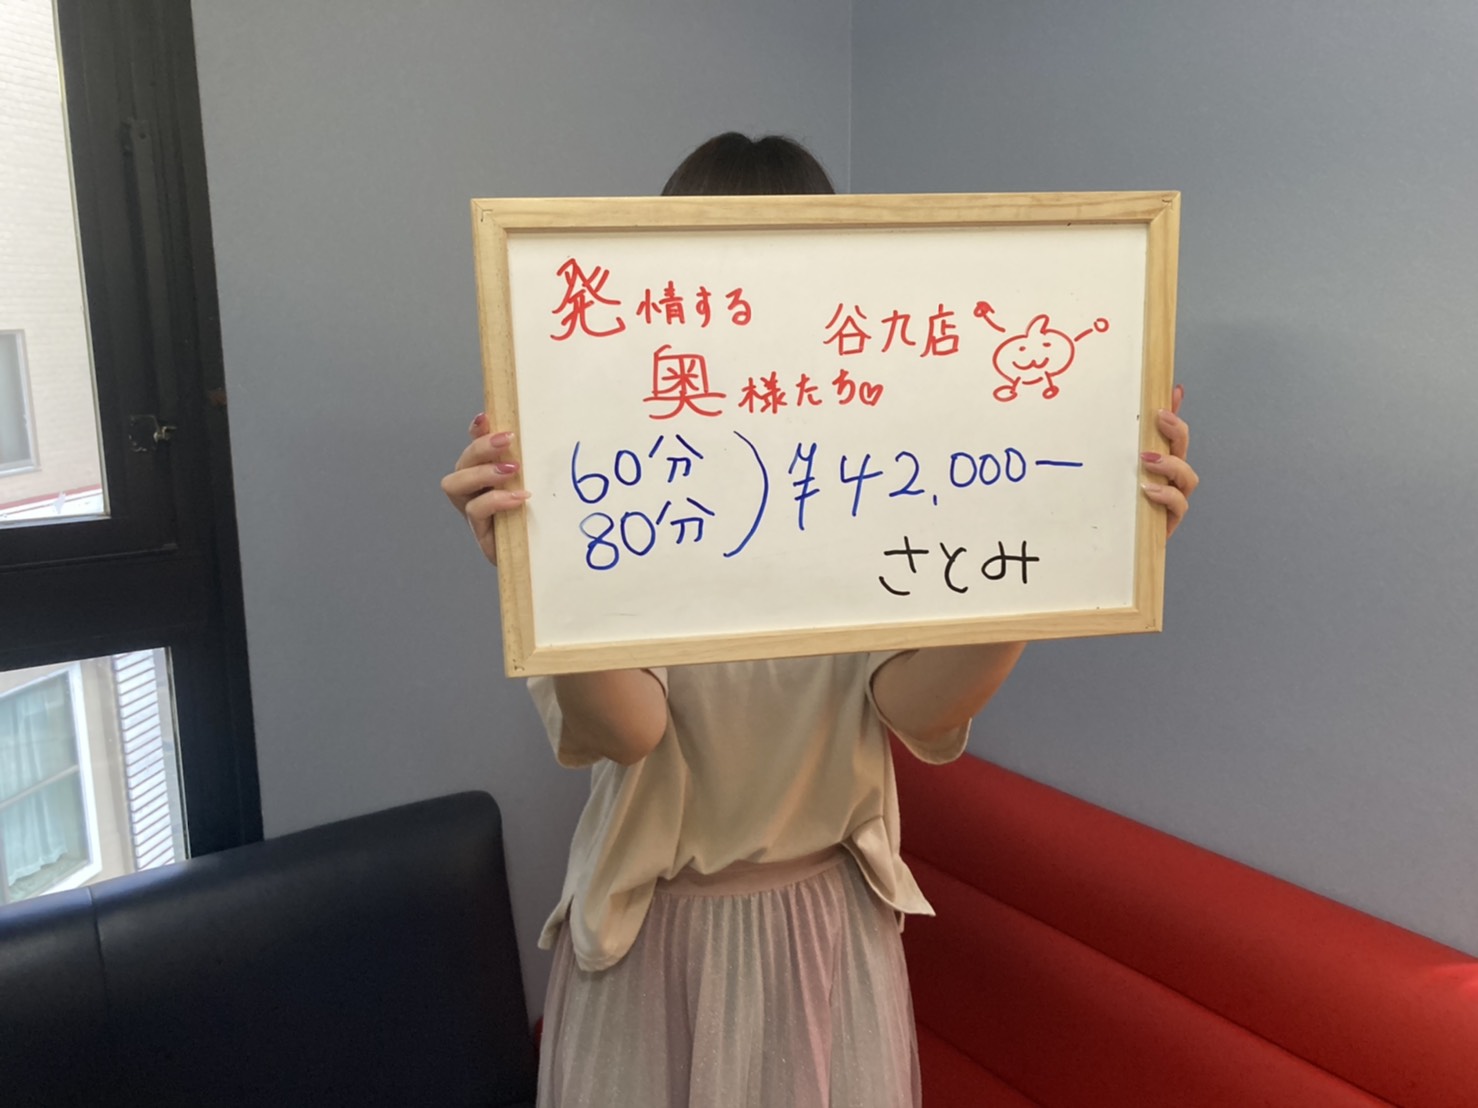 発情する
奥様たち♡
谷九店
60分
80分
)¥42,000ー
さとみ